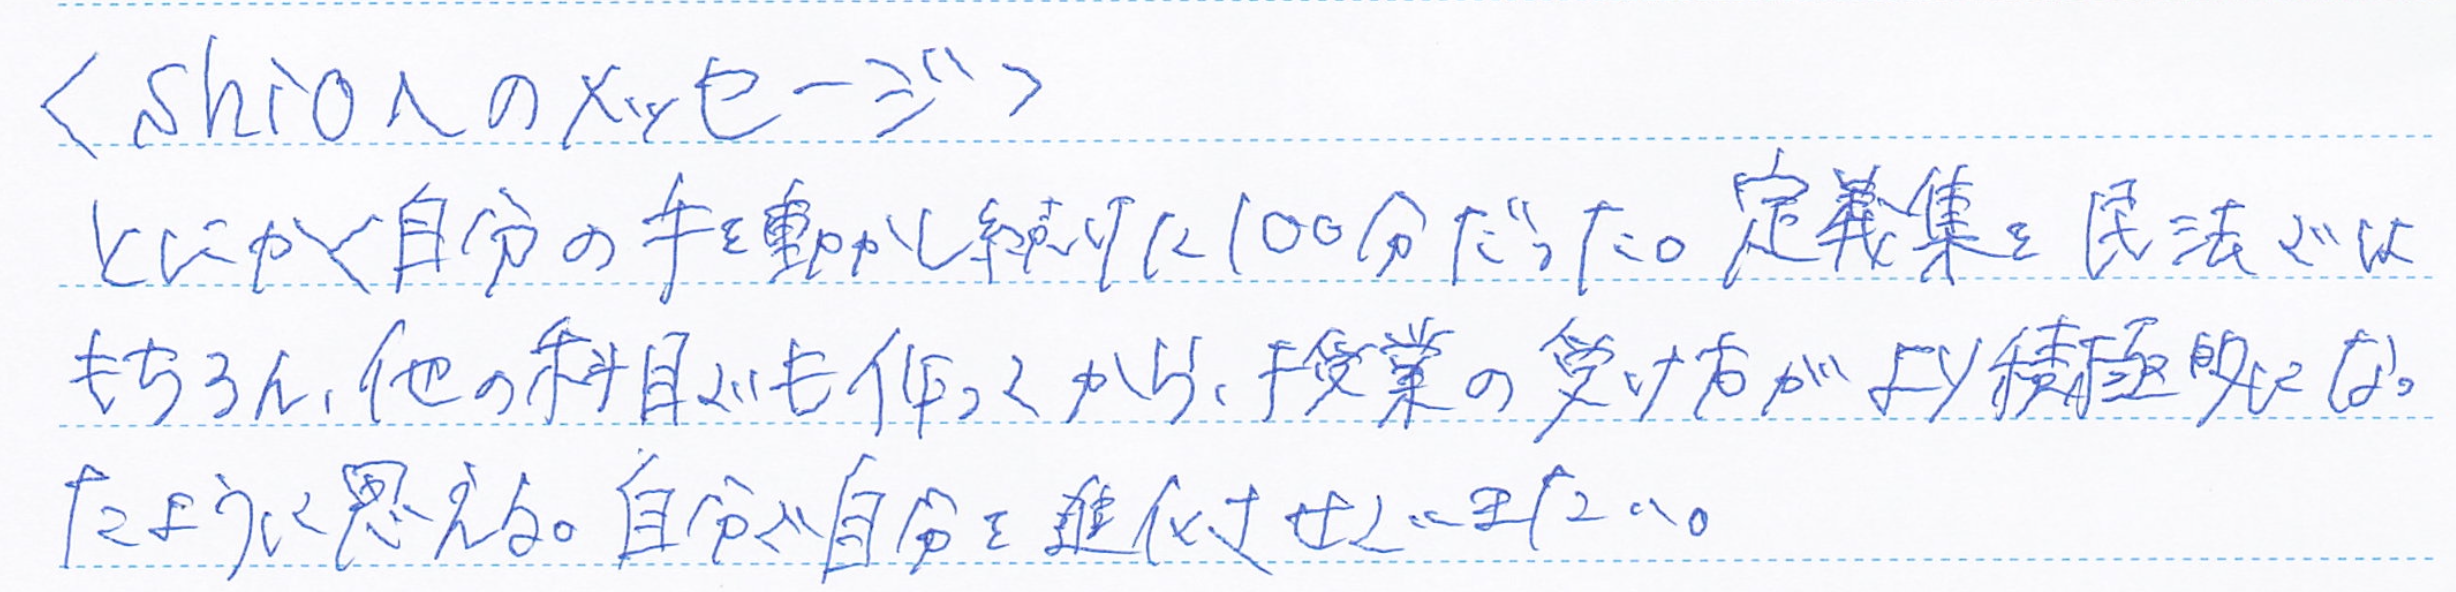 <shioへのメッセージ>
とにかく自分の手を動かし続けた100分だった。定義集を民法では
もちろん、他の科目でも作ってから、授業の受け方がより積極的になっ
たように思える。自分で自分を進化させていきたい。